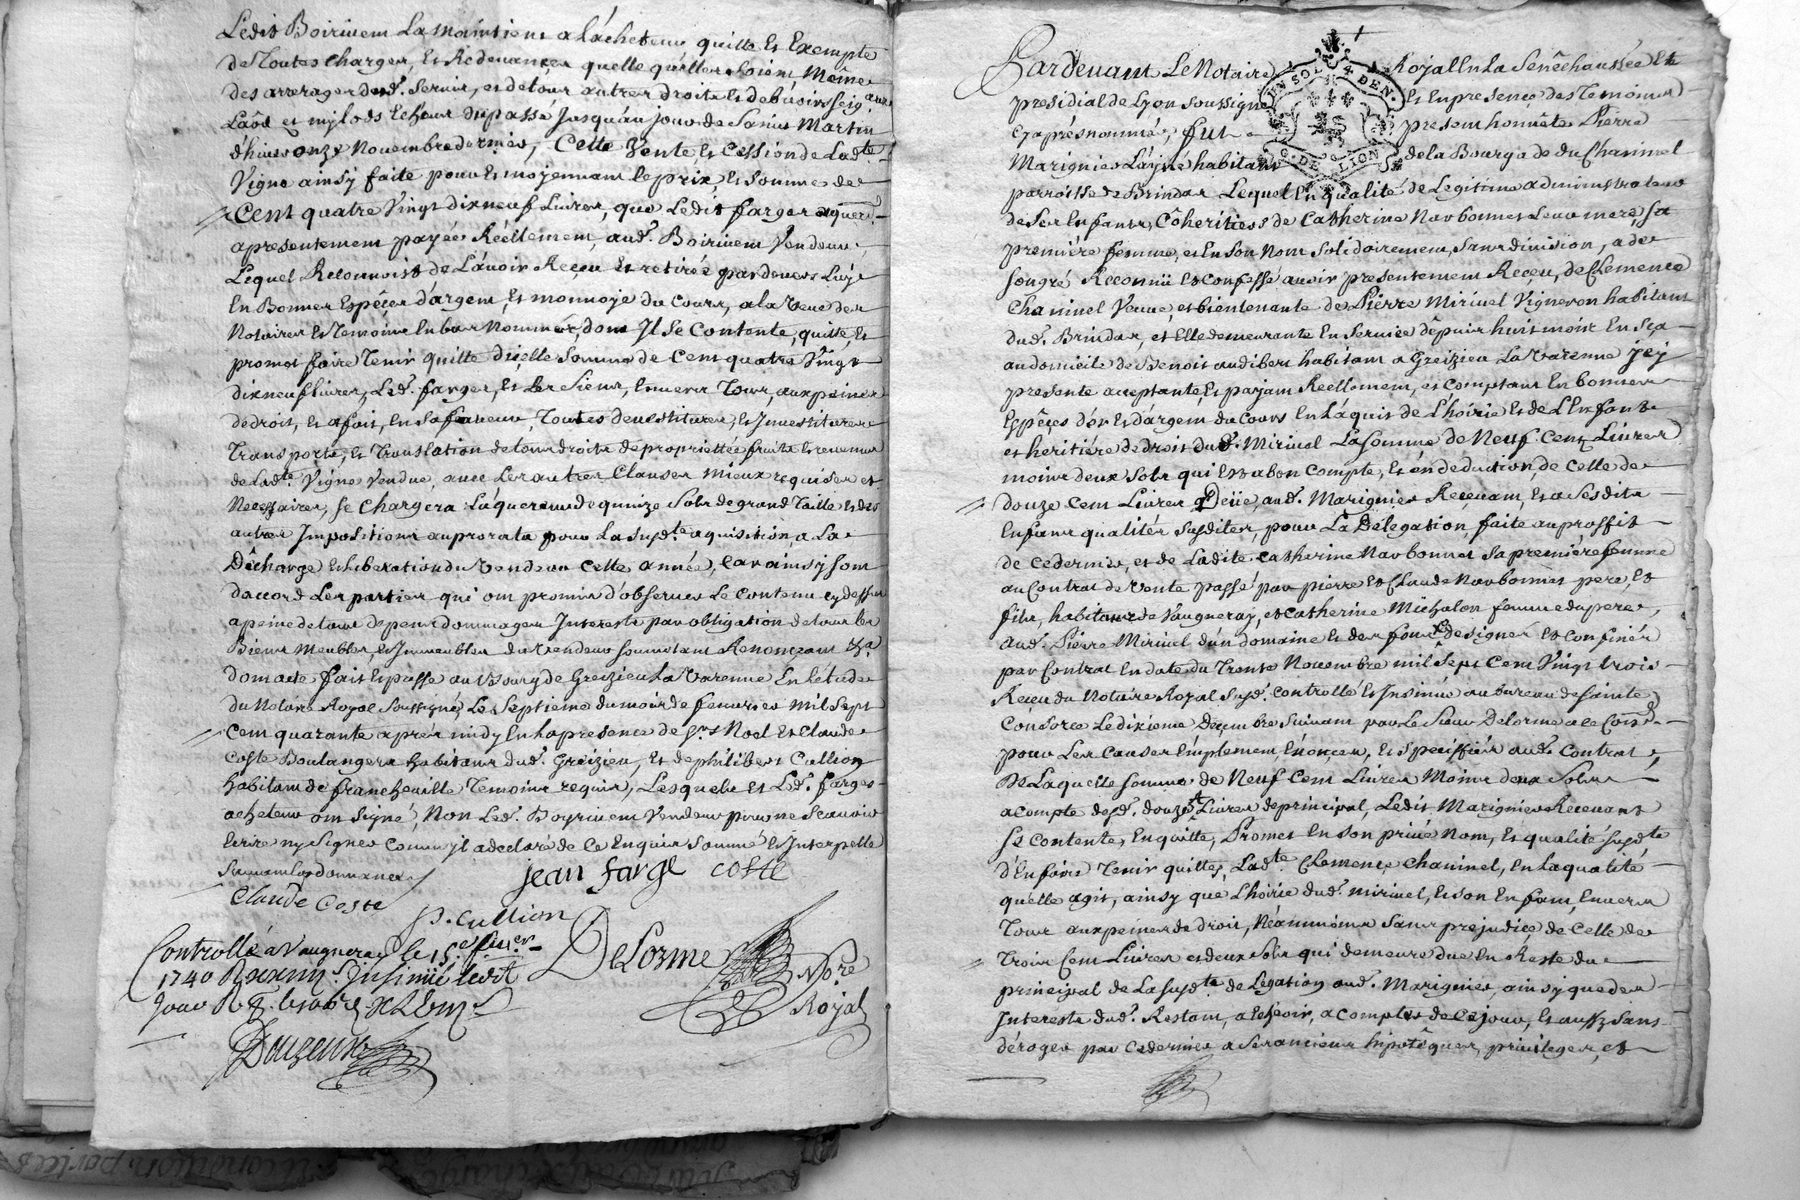 Ledit Boiriuem La maintient a L'achetteur quitte Et Exempte
de Toutes charges, Et Redeuances quelle qu'elles soient, Même
des arrerages dud. Seruis, et de tous autres droits et debuoirs seigaux
Laôd et mylods Echeus du passé Jusqu'au Jour de Saint Martin
d'hiuer onze Nouembre dernier, Cette Vente Et Cession de Ladte
Vigne ainsy faite pour Et moyennant le prix, Et somme de
Cent quatre Vingt dix neuf Liures, que Ledit farges aquereur
a presentement payée Réellement, aud. Boiriuem Vendeur,
Lequel Reconnoist de L'auoir Reçeu Et retirée pardeuers Luy
En Bonnes Espêçes d'argent, Et monnoye du Cours, a la Veue des
Notaire Et Temoins En bas Nommés, dont Il se Contente, quitte, Et
promet faire Tenir quitte d'içelle Somme de Cent quatre Vingt
dix neuf Liures, Led. farges, Et Les Siens, Enuers Tous, aux peines
de droit, Et a fait, En sa faueur, Toutes deuestitures, Et Inuestitures
Transports, Et Translation de tous droits de proprietté fruits Et reuenus
de Ladte Vigne Vendue, auec Les autres Clauses mieux requises et
Necessaires, se Chargera L'aquereur de quinze Sols de grand Taille Et des
autres Impositions au prorata pour La susdte aquisition, a La
Dêcharge Et Liberation du Vendeur Cette année, Car ainsy sont
d'accord Les parties qui ont promis d'obseruer Le Contenu cy dessus
a peine de tous depens dommages Interests par obligation de tous Les
Biens Meubles, Et Immeubles du Vendeur soumettant Renonceant &a
dont acte fait Et passé au Bourg de Greizieu La Varenne En L'étude
du Notaire Royal Soussigné, Le Septieme du mois de feurier mil Sept
Cent quarante apres midy En la presence de srs Noel Et Claude
Coste Boulangers habitans dud. Greizieu, Et de philibert Cullion
habitant de francheuille Temoins requis, Lesquels Et Led. farges
acheteur ont Signé, Non Led. Boyriuem Vendeur pour ne Scauoir
Ecrire ny Signer Comm'jl a declaré de Ce Enquis Sommé Et Interpellé
Suiuant Les ordonnances
jean farge coste
Claude Coste
p. cullion
Controllé a Vaugneray le 15e feurer
1740 Insinüé ledit
Jour
DeLorme Nore
Royal
Douzeux
Pardeuant Le Notaire Royal En La Senêchaussée Et
presidial de Lyon soussigné Et En presençe des Temoins
Cy aprés nommés, fut present honnête Pierre
Marignier L'ayné habitant de la Bourgade du Chaninel
parroisse de Brindas Lequel En qualité de Legitime administrateur
de Ses Enfants, Cohéritiers de Catherine Narbonnet Leur mere, sa
premiére femme, et En son Nom solidairement, sans diuision, a de
son gré Reconnü et Confessé auoir presentement Reçeu, de Clemence
Chaninel Veuue, et bientenante de Pierre Miriuel Vigneron habitant
dud. Brindas, et Elle demeurante En Seruice dêpuis huit mois En sça
au domicile de Benoit audibert habitant a Greizieu La Varenne jcy
presente acceptante Et payant Réellement, et Comptant En bonnes
Espêçes d'or Et d'argent du Cours En L'aquit de L'hoirie Et de L'Enfant
et heritiére de droit dud. Miriuel La somme de Neuf Cent Liures
moins deux Sols qui Est a bon Compte, Et en deduction, de Celle de
douze Cent Liures Deüe, aud. Marignier Reçeuant, Et a Sesdits
Enfans qualités susdites, pour La Délegation, faite au proffit
de Ce dernier, et de Ladite Catherine Narbonnet sa premiére femme
au Contrat de Vente passé par pierre Et Claude Narbonnet pere, Et
fils, habitans de Vaugneray, et Catherine Michalon femme du pere,
aud. Pierre Miriuel d'un domaine Et des fonds designés Et Confinés
par Contrat En date du Trente Nouembre mil Sept Cent Vingt trois
Reçeu du Notaire Royal Susd. Controllé Et Insinüé au bureau de Sainte
Consorce Le dixieme Deçembre Suiuant par Le Sieur Delorme
pour Les Causes amplement Enonçées, Et Speciffiés aud. Contrat,
De Laquelle somme de Neuf Cent Liures Moins deux Sols
a compte desd. douze ct Liures de principal, Ledit Marignier Reçeuant
se Contente, En quitte, Promet En son priué Nom, Et qualité susdte
d'En faire Tenir quittes, Ladte Clemençe Chaninel, En La qualité
qu'elle agit, ainsy que L'hoirie dud. miriuel, Et son Enfant, Enuers
Tous aux peines de droit, Néanmoins sans prejudice de Celle de
Trois Cent Liures et deux Sols qui demeure due En Reste du
principal de La susdte délegation aud. Marignier, ainsy que des
Interests dud. Restant, a Echeoir, a Compter de Ce jour, Et aussy sans
déroger par Ce dernier a Ses anciens hipotêques, priuileges, et
EN. SOL. 4. DEN.
G. DE LION